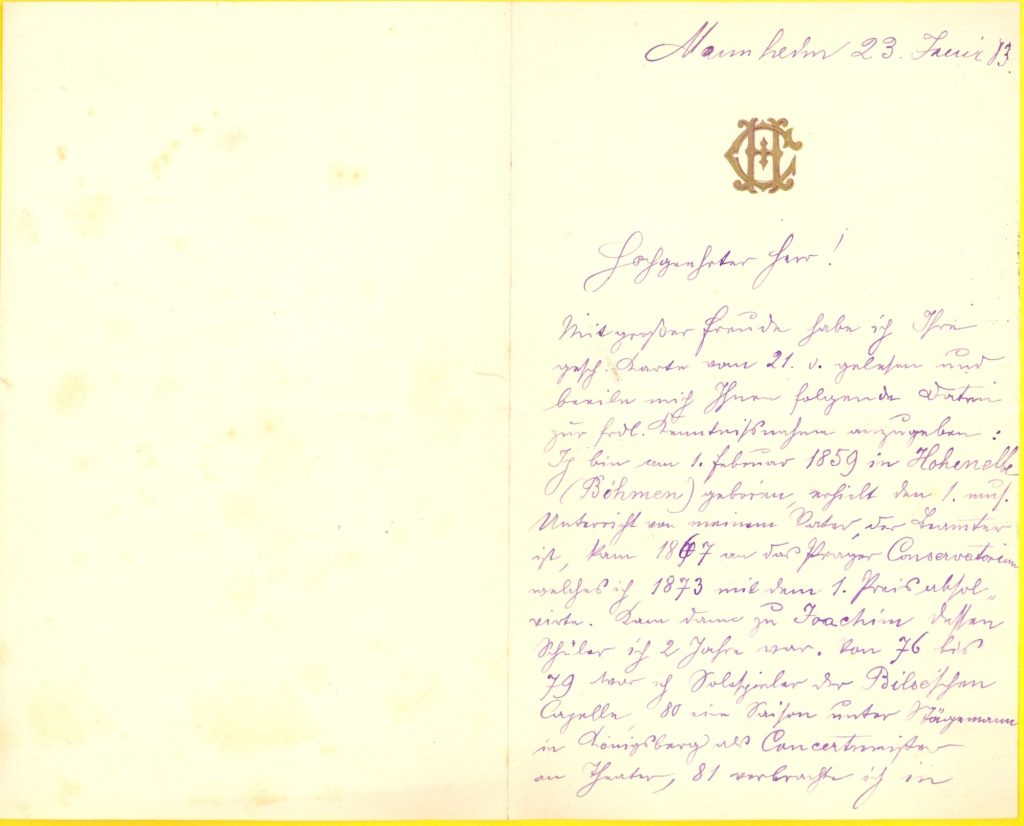 Mannheim 23. Januar 83.
HC
Hochgeehrter Herr!
Mit großer Freude habe ich Ihre
gesch. Karte vom 21. d. gelesen und
beeile mich Ihnen folgende Daten
zur frdl. Kenntnißnahme anzugeben:
Ich bin am 1. Februar 1859 in Hohenelbe
(Böhmen) geboren, erhielt den 1. mus.
Unterricht von meinem Vater, der Beamter
ist, kam 1867 an das Prager Conservatorium
welches ich 1873 mit dem 1. Preis absol„
virte. Kam dann zu Joachim dessen
Schüler ich 2 Jahre war. Von 76 bis
79 war ich Solospieler der Bilse'schen
Capelle, 80 eine Saison unter Stägemann
in Königsberg als Concertmeister
am Theater, 81 verbrachte ich in